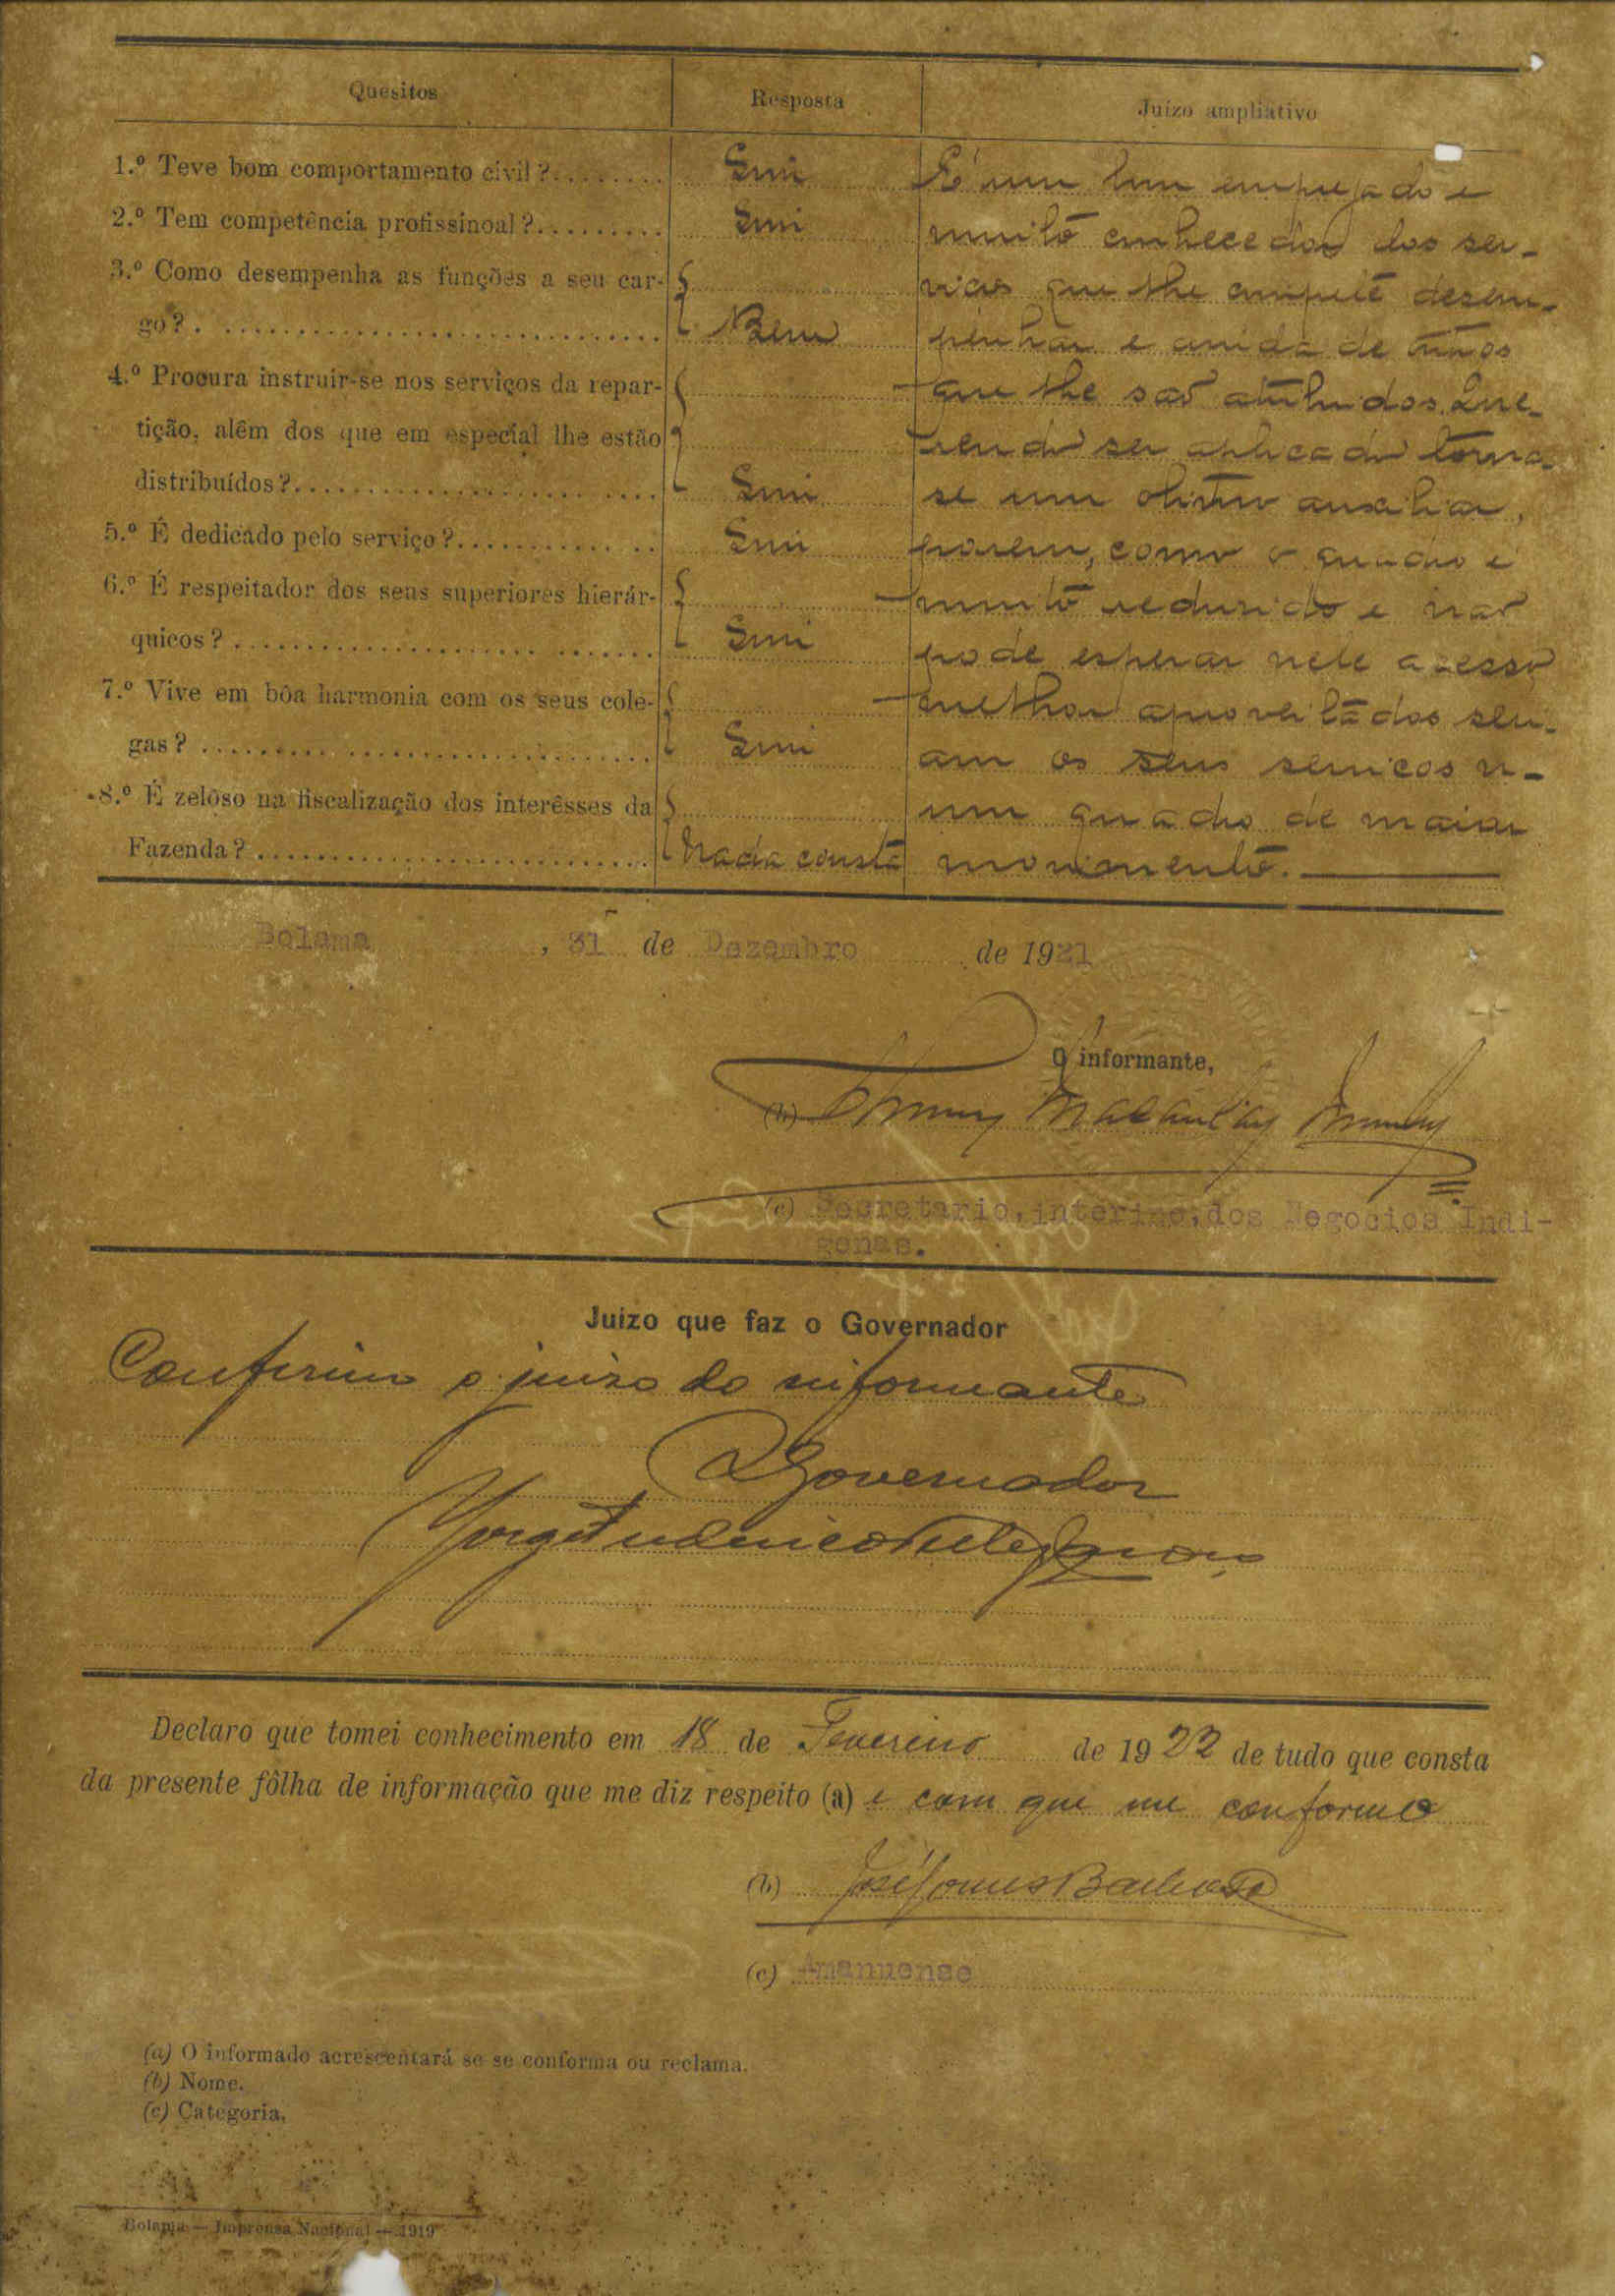 Quesitos Resposta Juízo ampliativo
1.º Teve bom comportamento civil ?........ Sim É um bom empregado e
2.º Tem competência profissinoal ?......... Sim muito conhecedor dos ser-
3.º Como desempenha as funções a seu car- viços que lhe compete desem-
go ? . .............................. Bem penhar e ainda de
4.º Procura instruir-se nos serviços da repar- que lhe são atribuidos. Que-
tição, alêm dos que em especial lhe estão rendo ser aplicado torna
distribuídos ?........................ Sim se um otimo auxiliar,
5.º É dedicado pelo serviço ?............ .. Sim porem, como o quadro é
6.º É respeitador dos seus superiores hierár- muito reduzido e não
quicos ? ..................... ....... Sim pode esperar nele acesso
7.º Vive em bôa harmonia com os seus cole- melhor aproveitados seri-
gas ? ......... ..................... Sim am os seus serviços n-
8.º É zelôso na fiscalização dos interêsses da um quadro de maior
Fazenda ? ........................... Nada consta movimento.
Bolama , 31 de Dezembro de 1921
O informante,
(b) Macaulay
(c) Secretario, interino, dos Negocios Indi-
genas.
Juizo que faz o Governador
Confirmo o juizo do informante
O Governador
Jorge Frederico Velez Caroço
Declaro que tomei conhecimento em 18 de Fevereiro de 1922 de tudo que consta
da presente fôlha de informação que me diz respeito (a) e com que me conformo
(b) José Gomes Barbosa
(c) Amanuense
(a) O informado acrescentará se se conforma ou reclama.
(b) Nome.
(c) Categoria.
Bolama — Imprensa Nacional — 1919